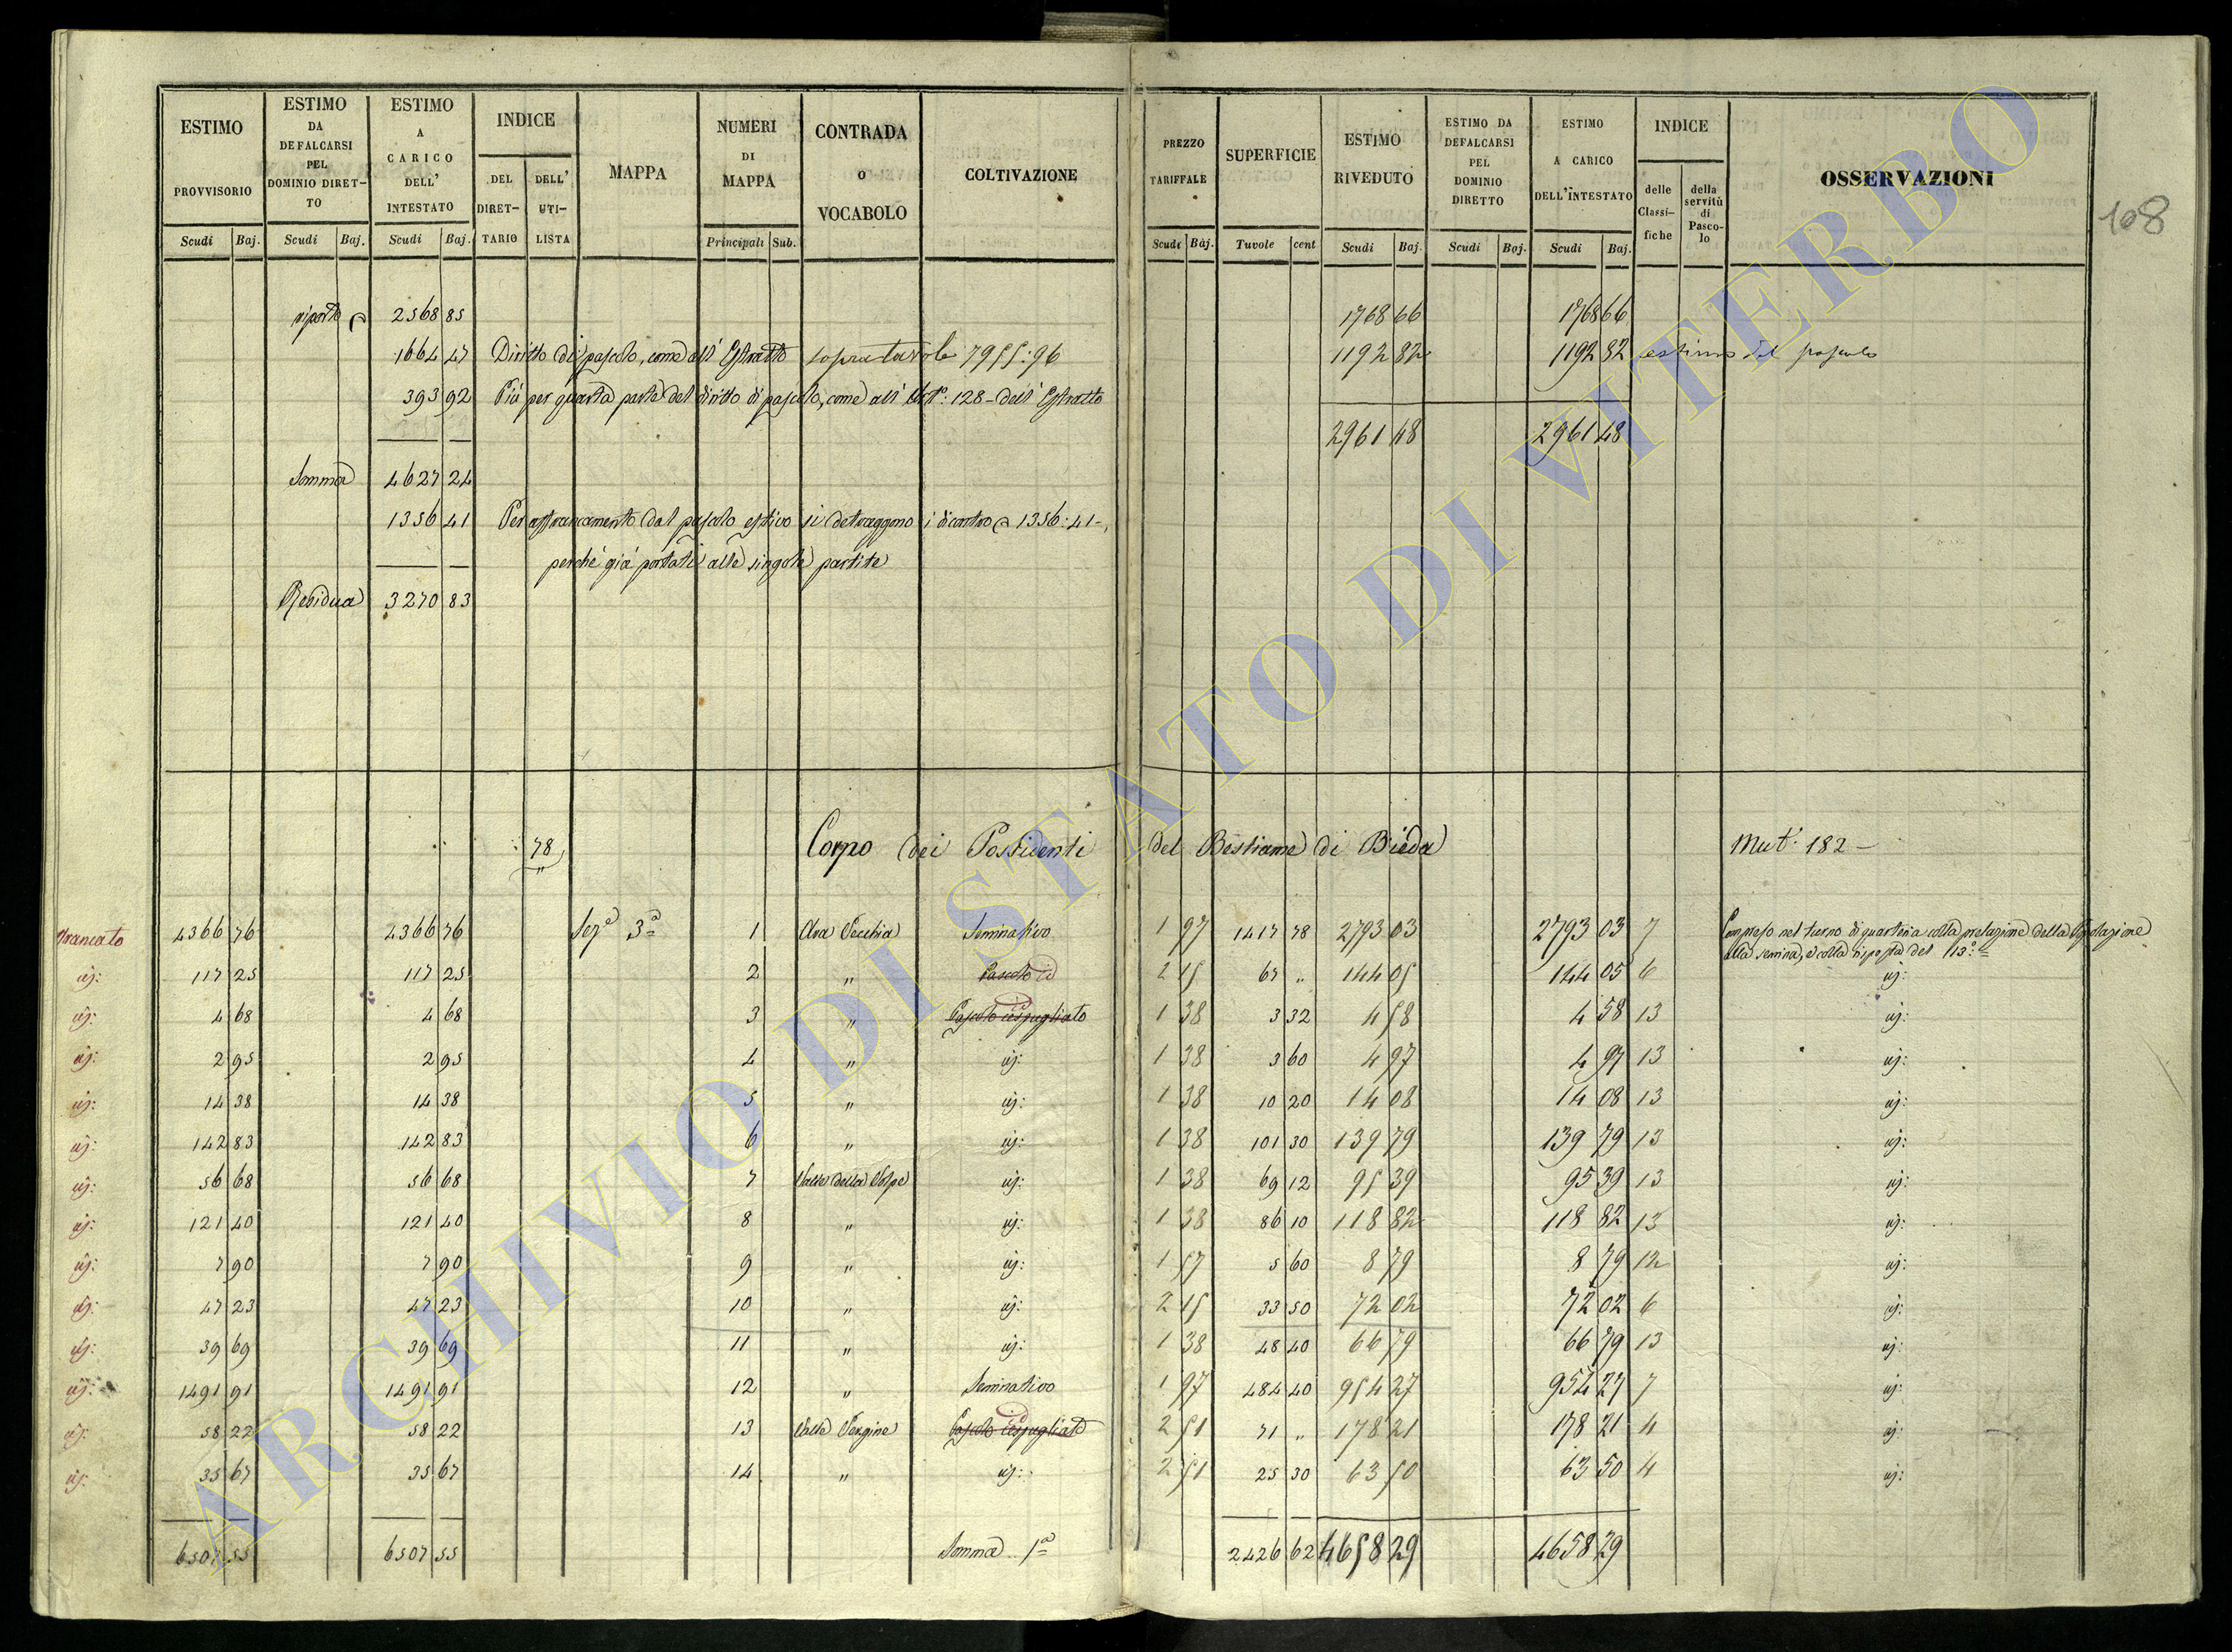 ESTIMO PROVVISORIO Scudi Baj.
ESTIMO DA DEFALCARSI PEL DOMINIO DIRET-TO Scudi Baj.
ESTIMO A CARICO DELL' INTESTATO Scudi Baj.
INDICE DEL DIRET-TARIO DELL' UTI-LISTA
MAPPA
NUMERI DI MAPPA Principali Sub.
CONTRADA O VOCABOLO
COLTIVAZIONE
PREZZO TARIFFALE Scudi Baj.
SUPERFICIE Tavole cent
ESTIMO RIVEDUTO Scudi Baj.
ESTIMO DA DEFALCARSI PEL DOMINIO DIRETTO Scudi Baj.
ESTIMO A CARICO DELL'INTESTATO Scudi Baj.
INDICE delle Classi-fiche della servitù di Pasco-lo
OSSERVAZIONI
108
riporto 2568 85 1768 66 1768 66
1664 47 Diritto di pascolo, come all' Estratto sopra tavole 7955:96 1192 82 1192 82 estimo del pascolo
393 92 Più per quarta parte del diritto di pascolo, come all' Art.º: 128 - dell' Estratto
2961 48 2961 48
Somma 4627 24
1356 41 Per affrancamento dal pascolo estivo si detraggono i dicontro 1356:41-,
perchè già portati alle singole partite
Residua 3270 83
78 Corpo dei Possidenti del Bestiame di Bieda Mut. 182 -
francato 4366 76 4366 76 Sez.e 3.a 1 Ara Vecchia Seminativo 1 97 1417 78 2793 03 2793 03 7 Compreso nel turno di quarteria colla prelazione della
alla semina, e colla risposta del 13.º
id: 117 25 117 25 2 " Pascolo id 2 15 67 " 144 05 144 05 6 id:
id: 4 68 4 68 3 " Pascolo cespugliato 1 38 3 32 4 58 4 58 13 id:
id: 2 95 2 95 4 " id: 1 38 3 60 4 97 4 97 13 id:
id: 14 38 14 38 5 " id: 1 38 10 20 14 08 14 08 13 id:
id: 142 83 142 83 6 " id: 1 38 101 30 139 79 139 79 13 id:
id: 56 68 56 68 7 Valle della Volpe id: 1 38 69 12 95 39 95 39 13 id:
id: 121 40 121 40 8 " id: 1 38 86 10 118 82 118 82 13 id:
id: 7 90 7 90 9 " id: 1 57 5 60 8 79 8 79 12 id:
id: 47 23 47 23 10 " id: 2 15 33 50 72 02 72 02 6 id:
id: 39 69 39 69 11 " id: 1 38 48 40 66 79 66 79 13 id:
id: 1491 91 1491 91 12 " Seminativo 1 97 484 40 954 27 954 27 7 id:
id: 58 22 58 22 13 Valle Vergine Pascolo cespugliato 2 51 71 " 178 21 178 21 4 id:
id: 35 67 35 67 14 " id: 2 51 25 30 63 50 63 50 4 id:
6507 55 6507 55 Somma 1.a 2426 62 4658 29 4658 29
ARCHIVIO DI STATO DI VITERBO